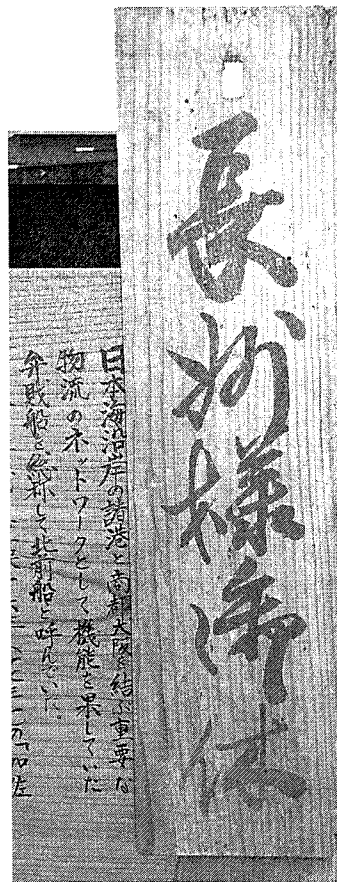 長州様御休
日本海沿岸の諸港と商都大阪を結ぶ重要な
物流のネットワークとして機能を果していた
弁財船を総称して北前船と呼んでいた。